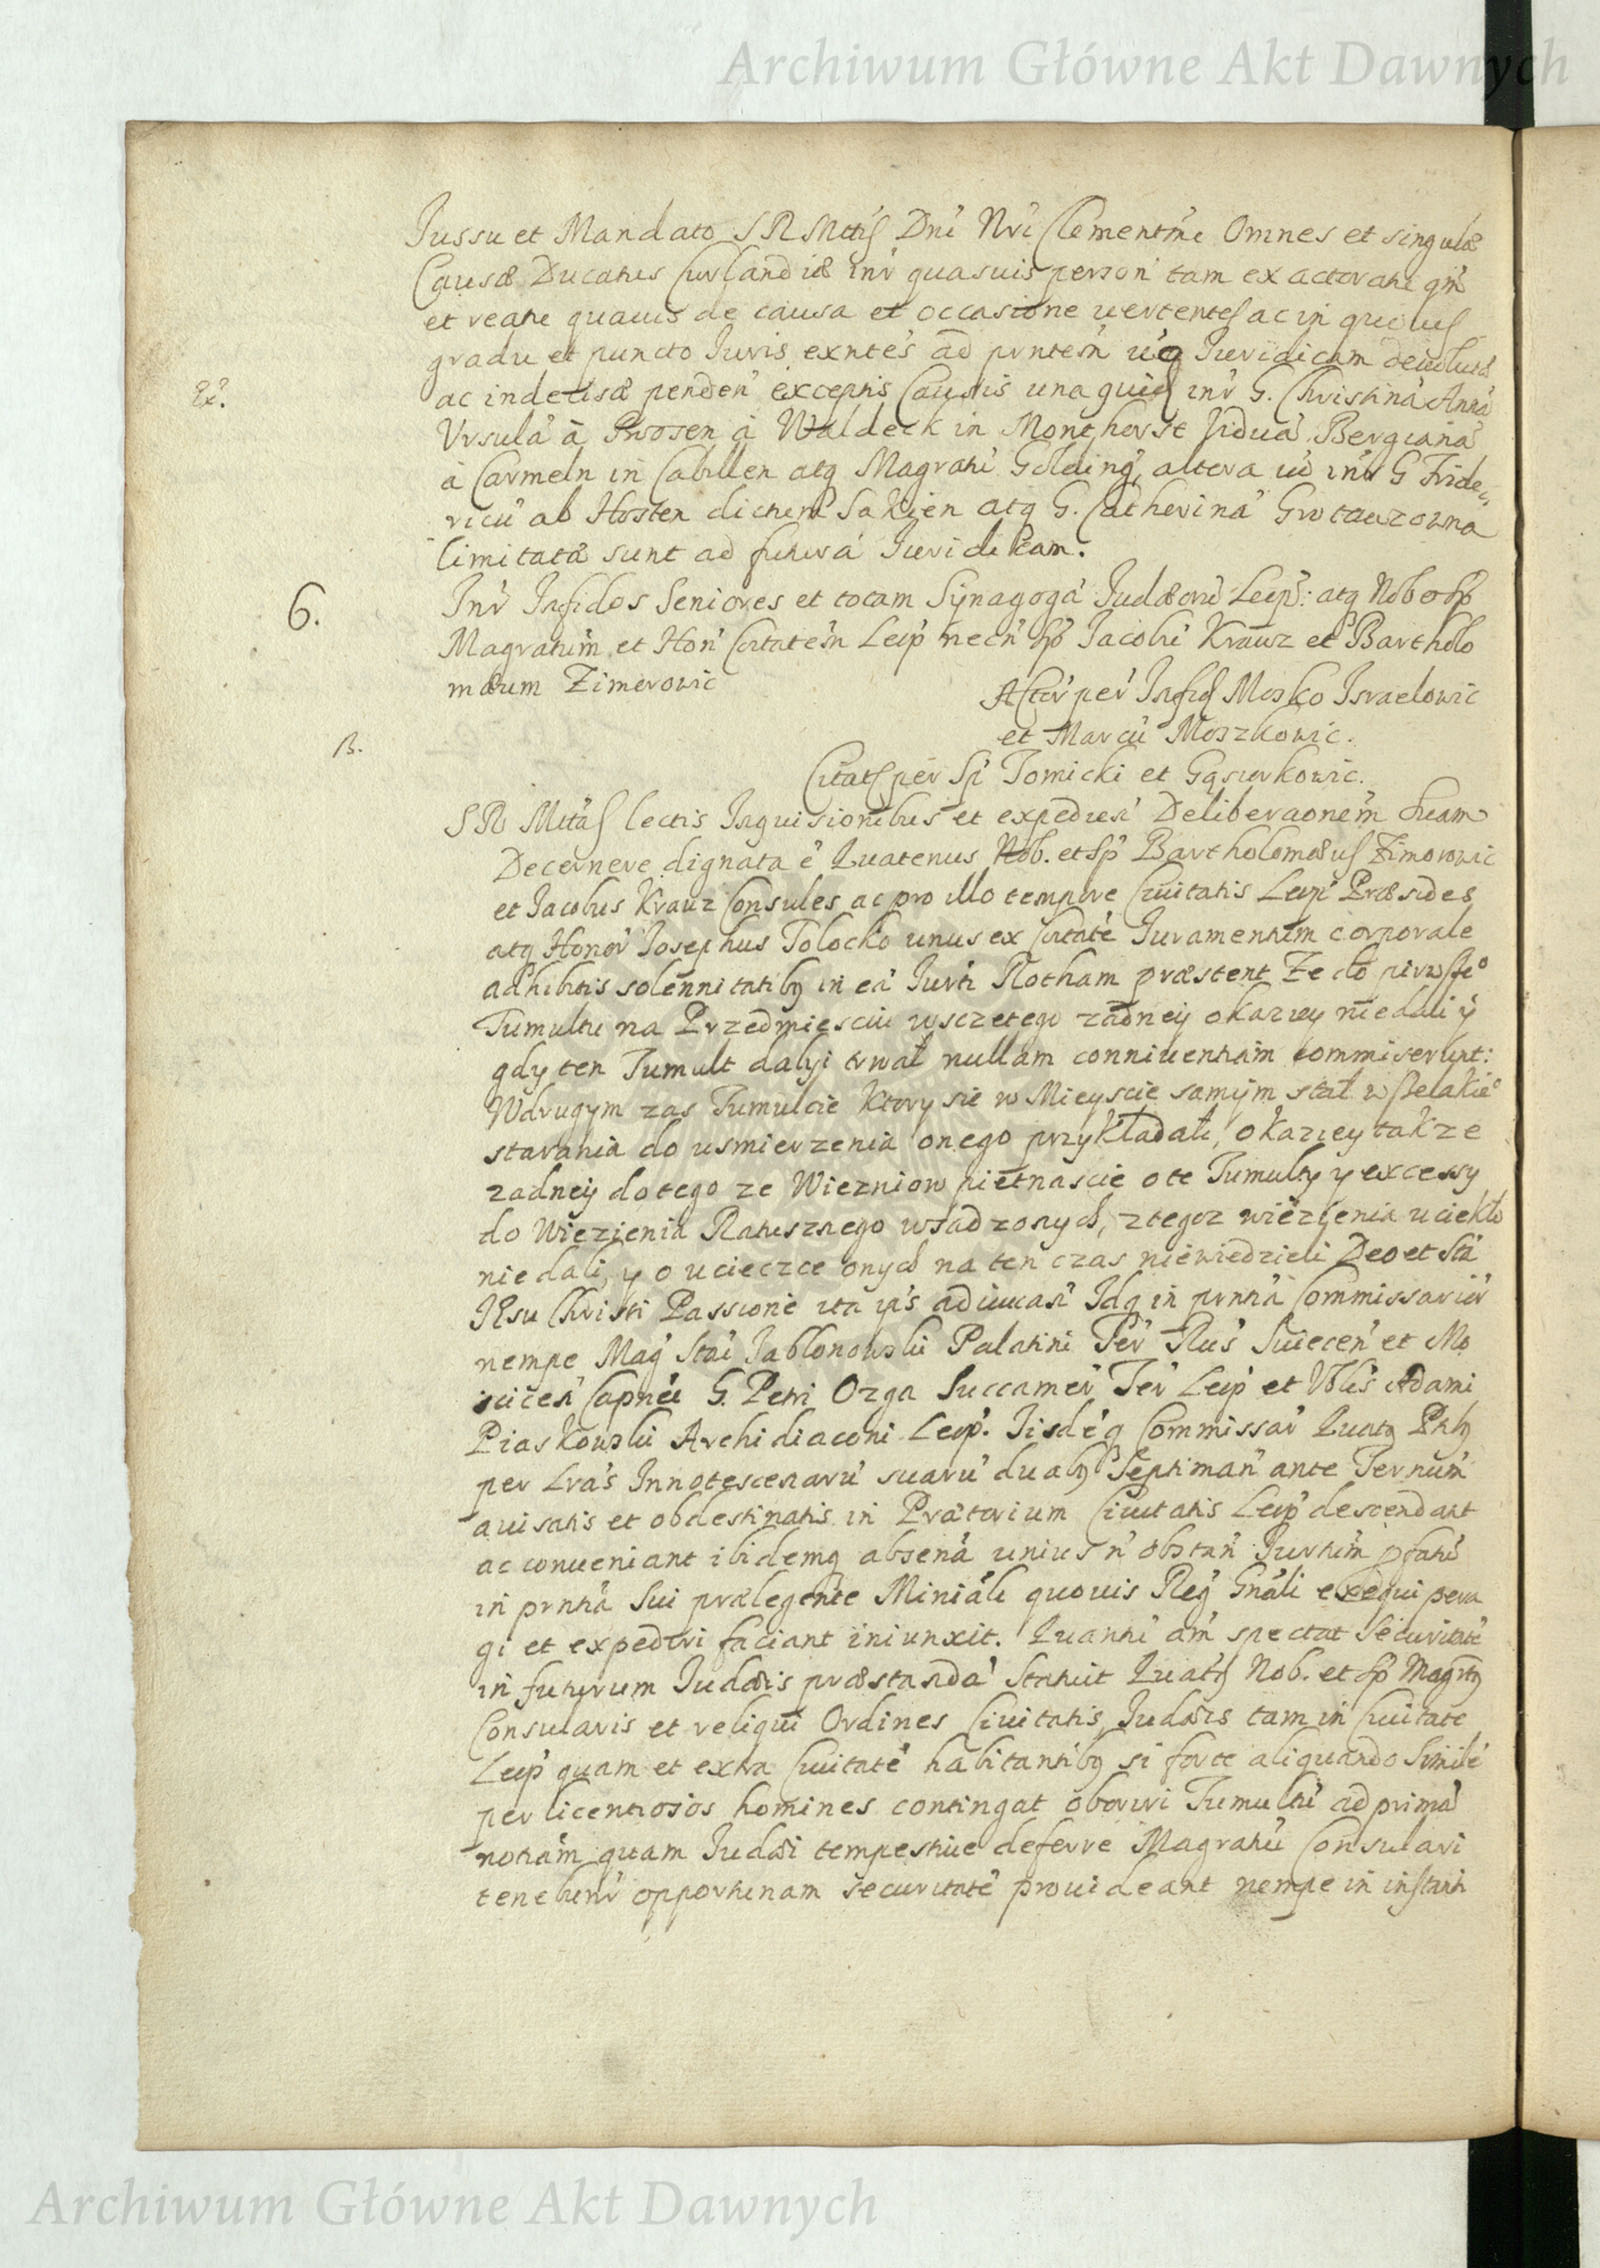 Archiwum Główne Akt Dawnych
Jussu et Mandato SR Mttis Dni Nri Clementmi Omnes et singulæ
Causæ Ducatus Curlandiæ inr quasuis person tam ex actoratu qm
et reatu quauis de causa et occasione uertentes ac in quouis
gradu et puncto Juris exntes ad pntem usq Juridicam deuolutæ
Ex.
ac indecisæ penden exceptis Causis una quid inr G. Christina Anna
Vrsula à Prosen à Waldeck in Monthorst Vidua Bergiana
à Carmeln in Cabillen atq Magratu Golding, altera ud inr G Fride
ricu ab Hosten dictum Sakien atq G. Catherina Grotauzowna
limitatæ sunt ad futura Juridicam.
6.
Inr Infidos Seniores et totam Synagoga Judæoru Leop: atq Nob et Sp
Magratum et Hon Cttatem Leop necn Sp Jacobu Krauz et Bartholo
mæum Zimerowic
Actor per Infid Mosko Israelowic
et Marcu Moszkowic.
B.
Citat per Sp Tomicki et Gąsiorkowic.
SR Mttas lectis Inquisitionibus et expedien Deliberaonem suam
Decernere dignata e Quatenus Nob. et Sp Bartholomæus Zimorowic
et Jacobus Krauz Consules ac pro illo tempore Ciuitatis Leop Præsides
atq Honor Josephus Tolocko unus ex Cttate Juramentum corporale
adhibitis solennitatiby in ea Jurti Rotham præstent Ze do pirwsze°
Tumultu na Przedmiesciu wsczetego zadney okaziey niedali y
gdy ten Tumult dalyi trwał nullam conniuentiam commiserunt:
Wdrugym zas Tumulcie Ktory sie w Mieyscie samym stał wszelakie°
starania do usmierzenia onego przykładali, okaziey takze
zadney do tego ze Wiezniow pietnascie o te Tumulty y excessy
do Wiezienia Ratusznego wsadzonych, z tegoz wiezienia uciekło
niedali, y o ucieczce onych na ten czas niewiedzieli Deo et Sta
JEsu Christi Passione ita ips adiuuan Idq in pnntia Commissarior
nempe Mag Stai Jablonowski Palatini Ter Rus Suiecen et Mo
scicen Capnei G. Petri Ozga Succamer Ter Leop et Vblis Adami
Piaskowski Archidiaconi Leop. Iisdeq Commissar Quaty Ptby
per Lras Innotescenaru suaru duaby Septiman ante Ternum
auisatis et obdestinatis in Prætorium Ciuitatis Leop descendant
ac conueniant ibidemq absena unius n obstan Jurtum pfatu
in pnntia sui prælegente Miniali quouis Reg Gnali exequi pera
gi et expediri faciant iniunxit. Quantu am spectat securitate
in futurum Judæis præstanda Statuit Quaty Nob. et Sp Magrty
Consularis et reliqui Ordines Ciuitatis, Judæis tam in Ciuitate
Leop quam et extra Ciuitate habitantiby si forte aliquando simile
per licentiosos homines contingat oboriri Tumultu ad prima
notiam quam Judæi tempestiue deferre Magratui Consulari
tenebunr opportunam securitate prouideant nempe in instanti
Archiwum Główne Akt Dawnych